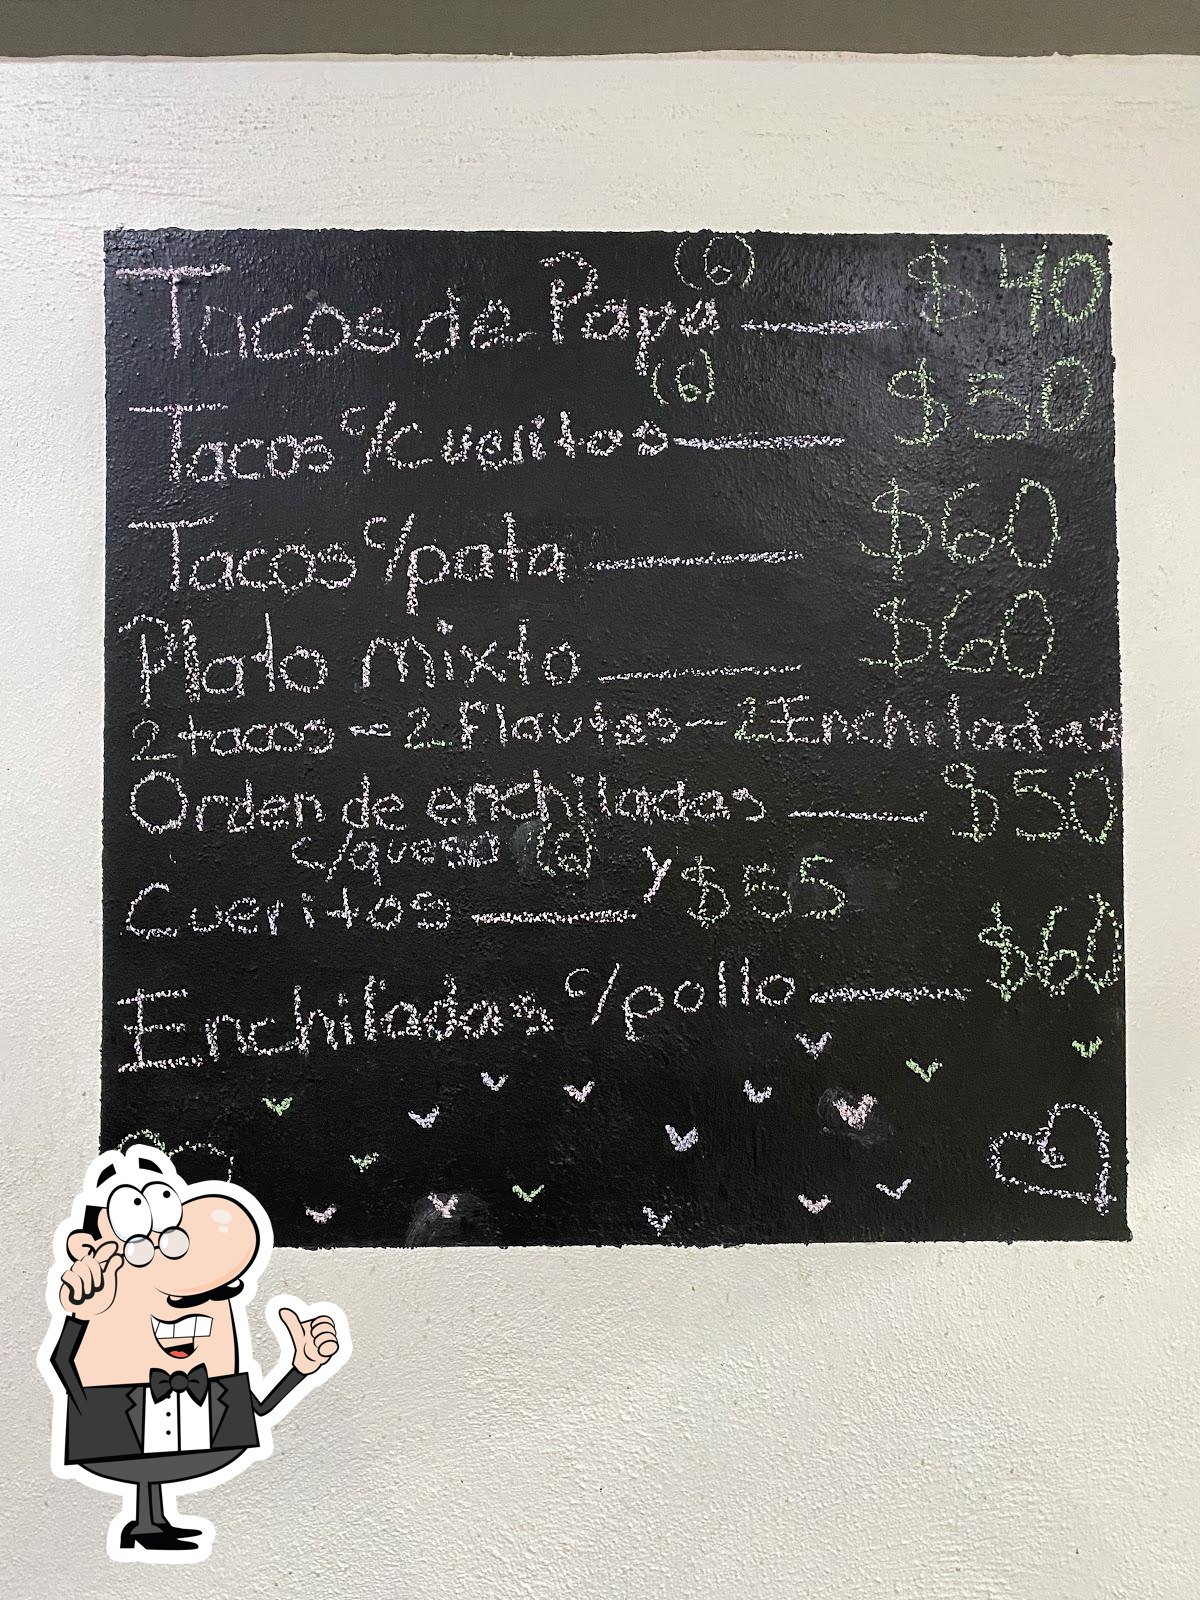 Tacos de Papa (6) $40
Tacos c/Cueritos (6) $50
Tacos c/pata $60
Plato mixto $60
2 tacos - 2 Flautas - 2 Enchiladas
Orden de enchiladas $50
c/queso (6) y
Cueritos $55
Enchiladas c/pollo $60